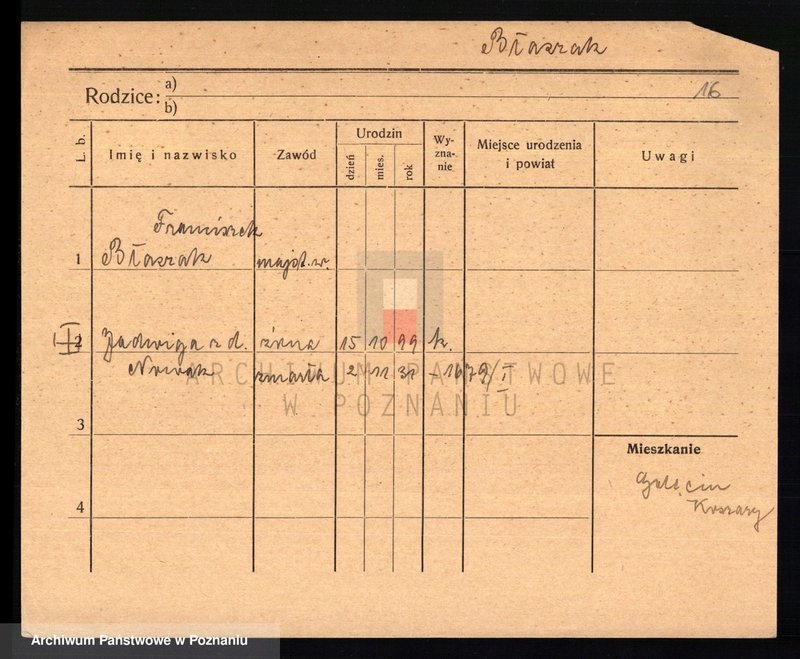 Błaszak
Rodzice: a)
b)
16
L. b.
Imię i nazwisko
Zawód
Urodzin
dzień
mies.
rok
Wy-
zna-
nie
Miejsce urodzenia
i powiat
Uwagi
Franciszek
1 Błaszak majst. w.
2 Jadwiga z d. żona 15 10 99 k.
Nowak zmarła 2 11 31 - 1679/I
3
4
Mieszkanie
Koszary
ARCHIWUM PAŃSTWOWE
W POZNANIU
Archiwum Państwowe w Poznaniu